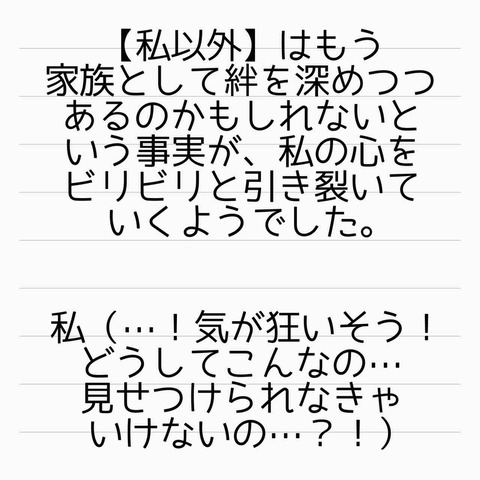 【私以外】はもう
家族として絆を深めつつ
あるのかもしれないと
いう事実が、私の心を
ビリビリと引き裂いて
いくようでした。
私（…！気が狂いそう！
どうしてこんなの…
見せつけられなきゃ
いけないの…？！）